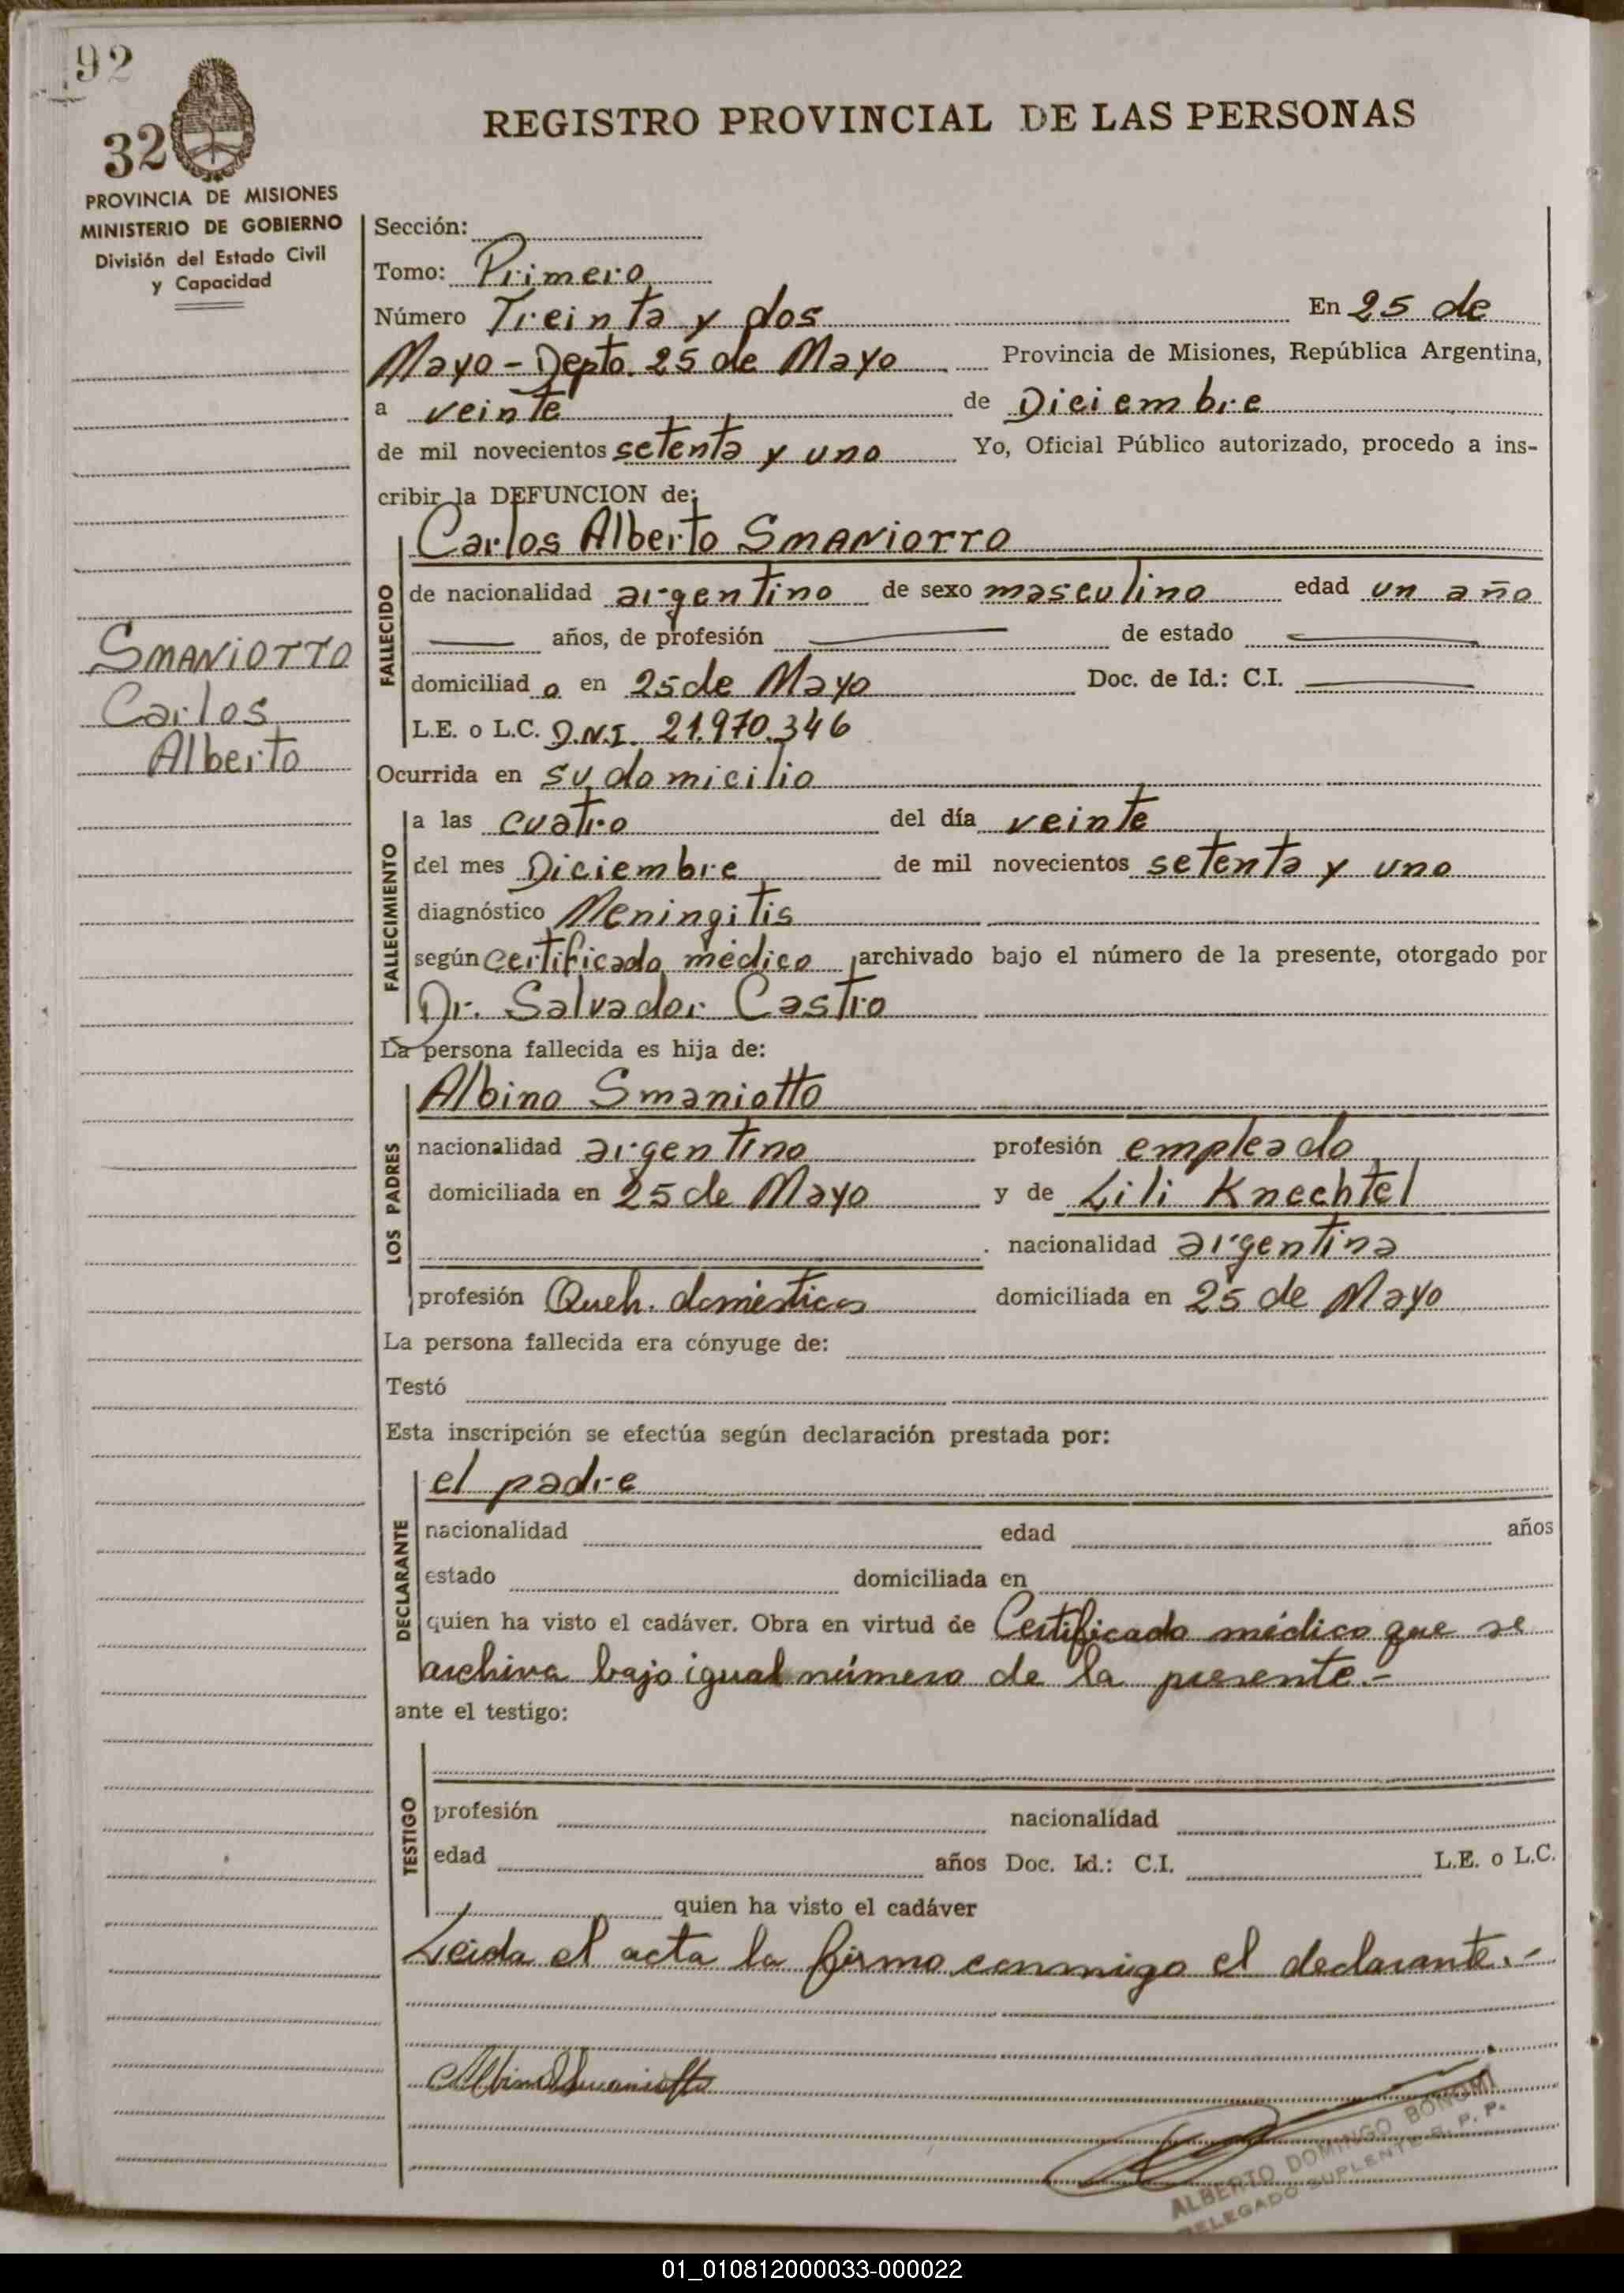 92
32
REGISTRO PROVINCIAL DE LAS PERSONAS
PROVINCIA DE MISIONES
MINISTERIO DE GOBIERNO
División del Estado Civil
y Capacidad
Sección:
Tomo: Primero
Número Treinta y dos En 25 de
Mayo - Depto. 25 de Mayo Provincia de Misiones, República Argentina,
a veinte de Diciembre
de mil novecientos setenta y uno Yo, Oficial Público autorizado, procedo a ins-
cribir la DEFUNCION de:
Carlos Alberto SMANIOTTO
FALLECIDO
de nacionalidad argentino de sexo masculino edad un año
años, de profesión de estado
domiciliado en 25 de Mayo Doc. de Id.: C.I.
L.E. o L.C. D.N.I. 21.970.346
SMANIOTTO
Carlos
Alberto
Ocurrida en su domicilio
FALLECIMIENTO
a las cuatro del día veinte
del mes Diciembre de mil novecientos setenta y uno
diagnóstico Meningitis
según certificado médico archivado bajo el número de la presente, otorgado por
Dr. Salvador Castro
La persona fallecida es hija de:
LOS PADRES
Albino Smaniotto
nacionalidad argentino profesión empleado
domiciliada en 25 de Mayo y de Lili Knechtel
nacionalidad argentina
profesión Queh. domésticos domiciliada en 25 de Mayo
La persona fallecida era cónyuge de:
Testó
Esta inscripción se efectúa según declaración prestada por:
DECLARANTE
el padre
nacionalidad edad años
estado domiciliada en
quien ha visto el cadáver. Obra en virtud de Certificado médico que se
archiva bajo igual número de la presente.-
ante el testigo:
TESTIGO
profesión nacionalidad
edad años Doc. Id.: C.I. L.E. o L.C.
quien ha visto el cadáver
Leida el acta la firma conmigo el declarante.-
Albino Smaniotto
ALBERTO DOMINGO BONOMI
DELEGADO SUPLENTE R. P. P.
01_010812000033-000022